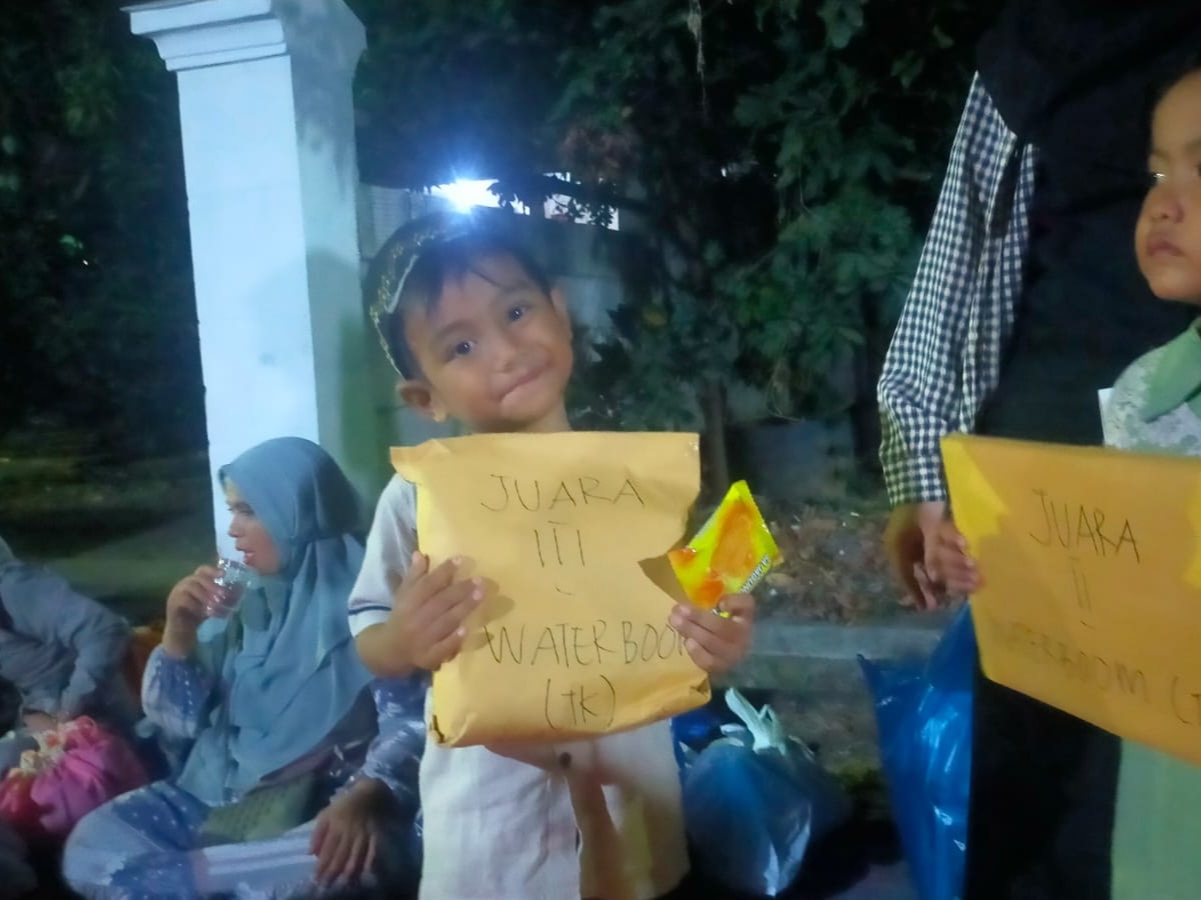 JUARA
III
WATERBOOM
(TK)
JUARA
II
WATERBOOM (T